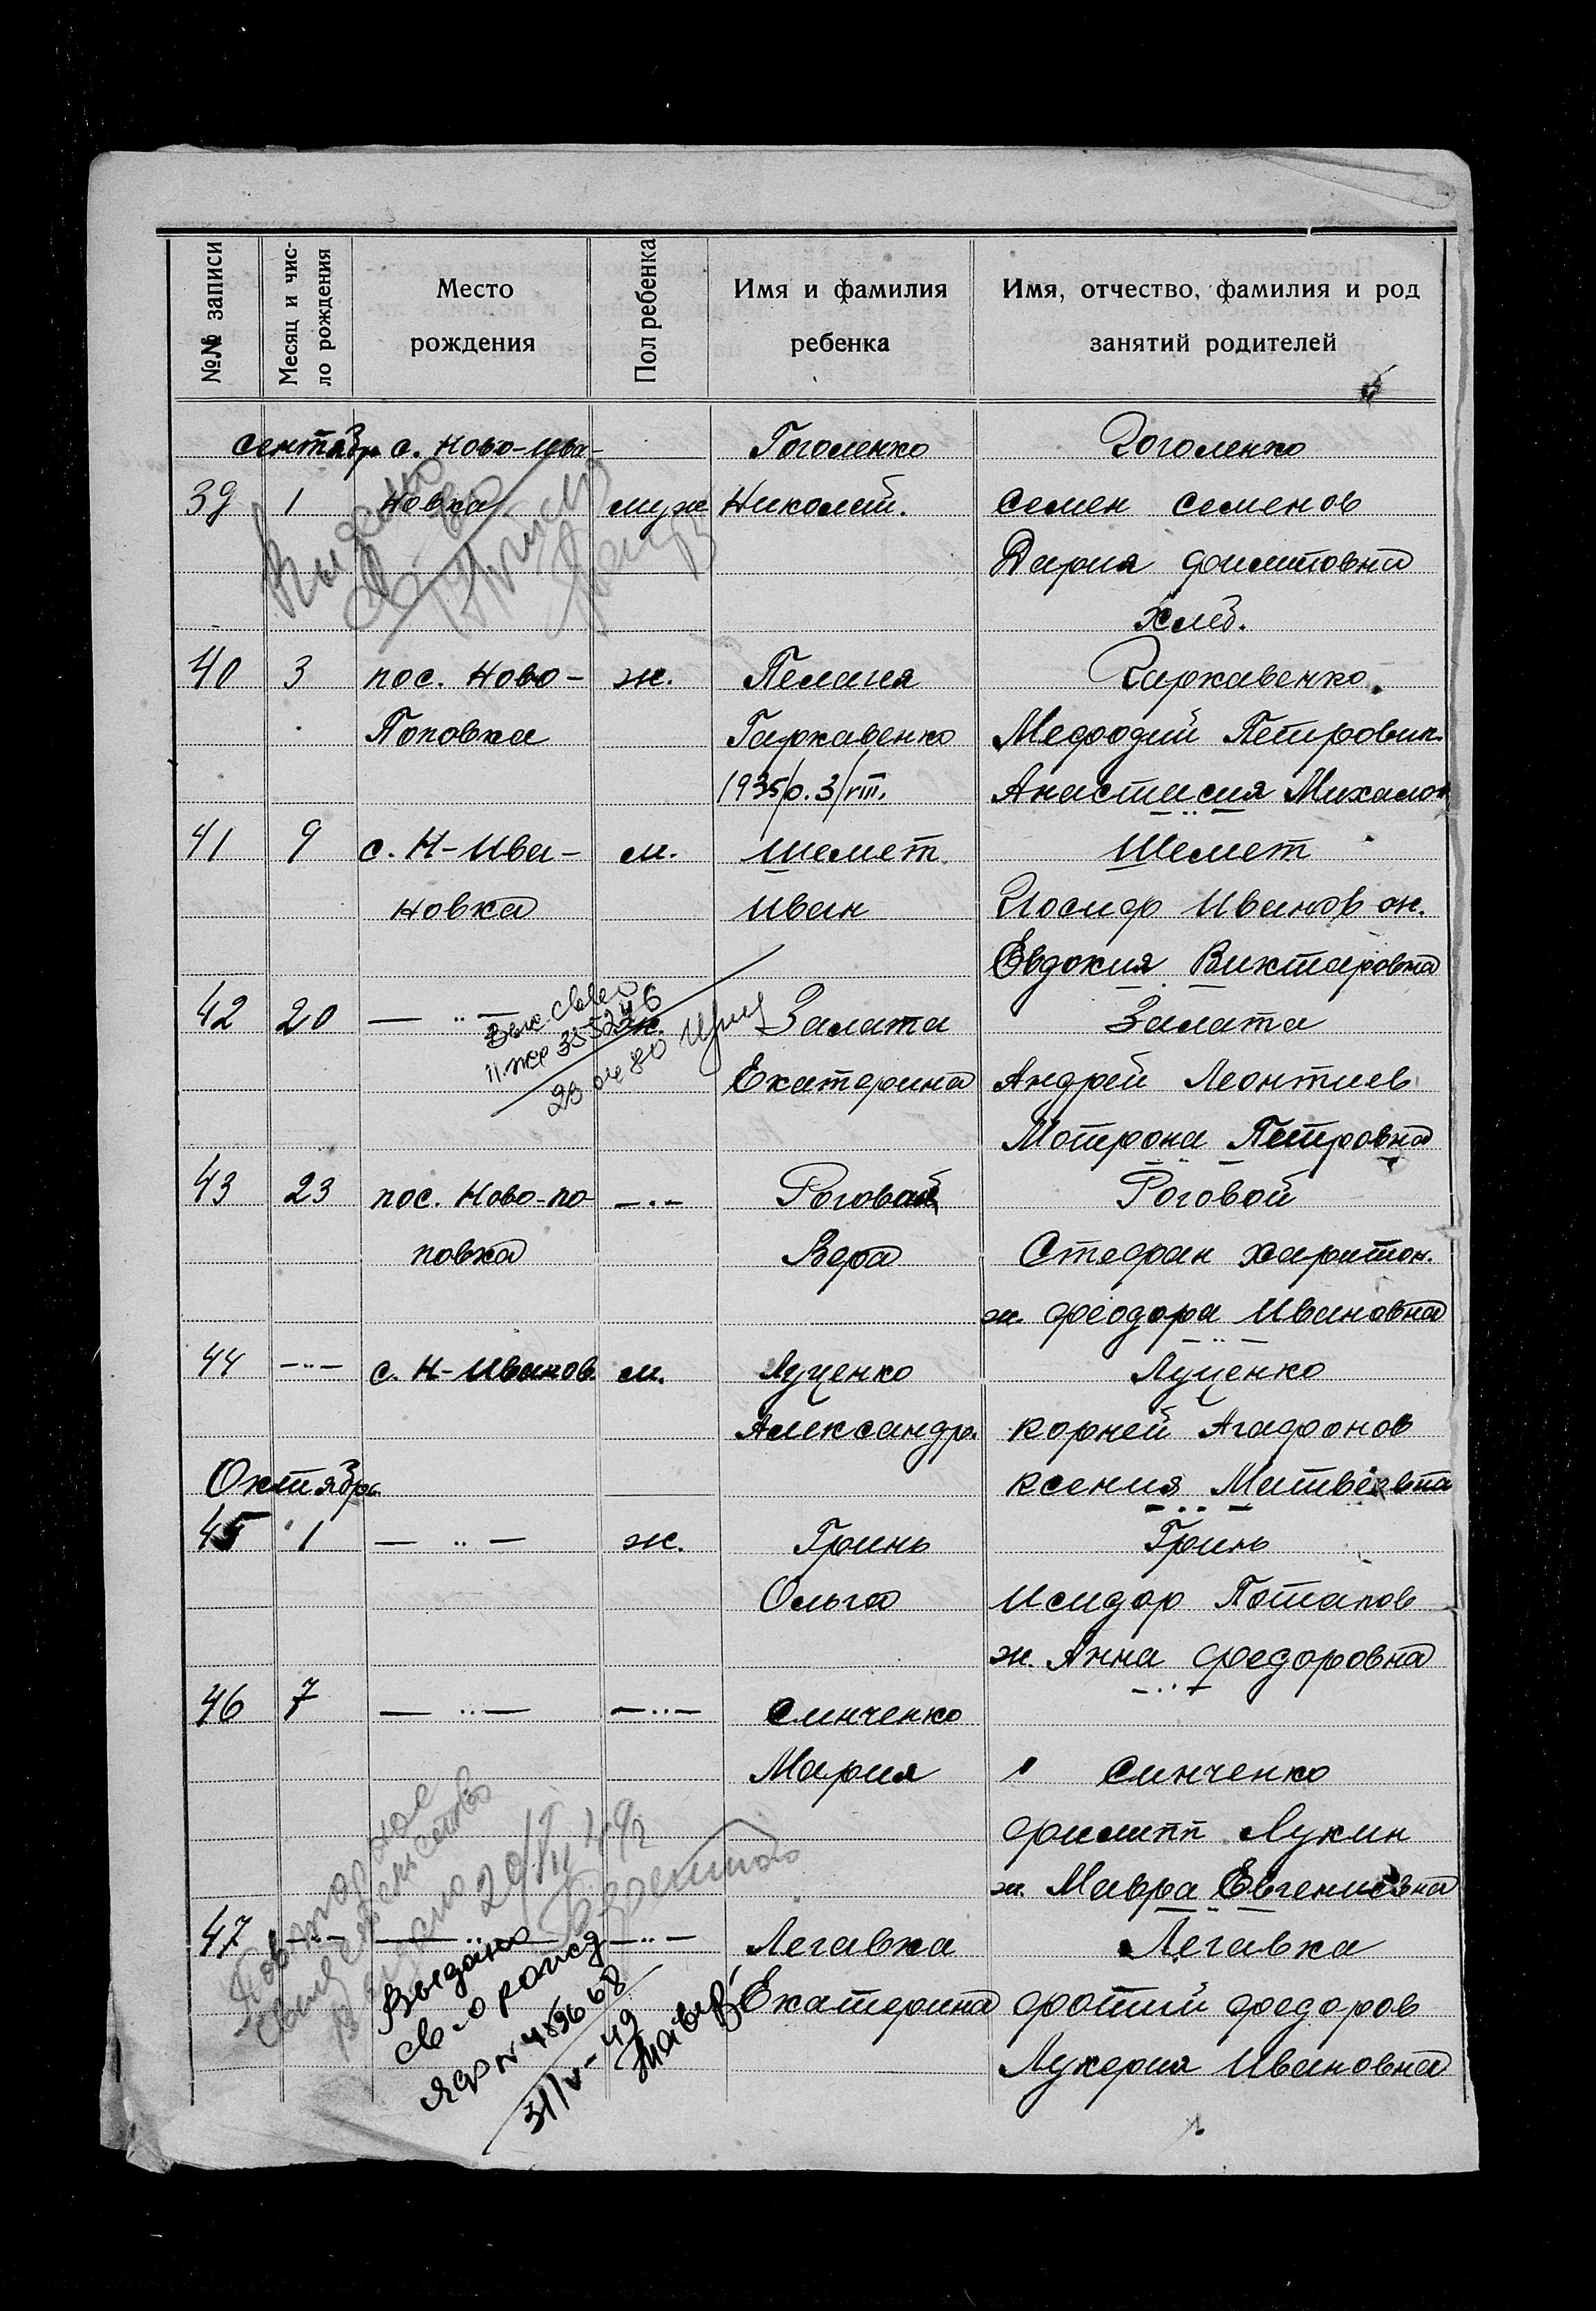 №№ записи
Месяц и число рождения
Место рождения
Пол ребенка
Имя и фамилия ребенка
Имя, отчество, фамилия и род занятий родителей
Сентябрь с. Ново-Ива- Гоголенко Гоголенко
39 1 новка муж Николай. Семен Семенов
Дария Филиповна
Хлеб.
Выдано
40 3 пос. Ново- ж. Пелагея Гаркавенко.
Поповка Гаркавенко Мефодий Петрович.
1935/о. 3/VIII. Анастасия Михалов
— ·· —
41 9 с. Н-Ива- м. Шемет Шемет
новка Иван Иосиф Иванов ж.
Евдокия Виктаровна
— ·· —
42 20 — ·· — ж. Залата Залата
II жр 355246
23 04 80
Екатерина Андрей Леонтиев
Мотрона Петровна
— ·· —
43 23 пос. Ново-по- —·— Роговой Роговой
повка Вера Стефан Харитон.
ж. Феодора Ивановна
— ·· —
44 —··— с. Н-Иванов. м. Луценко Луценко
Александр. Корней Агафонов
Октябрь Ксения Матвеевна
— ·· —
45 1 — ·· — ж. Гринь Гринь
Ольга Исидор Потапов
ж. Анна Федоровна
— ·· —
46 7 — ·· — —··— Синченко
Мария Синченко
Филипп Лукин
ж. Мавра Евгениевна
— ·· —
Повторное
свидетельство
выдано 20/VII 49г
47 —··— — ·· — —··— Легавка Легавка
Выдано
св-о рожд
ЯФ № 489668
31/V-49
Екатерина Фотий Федоров
Лукерия Ивановна